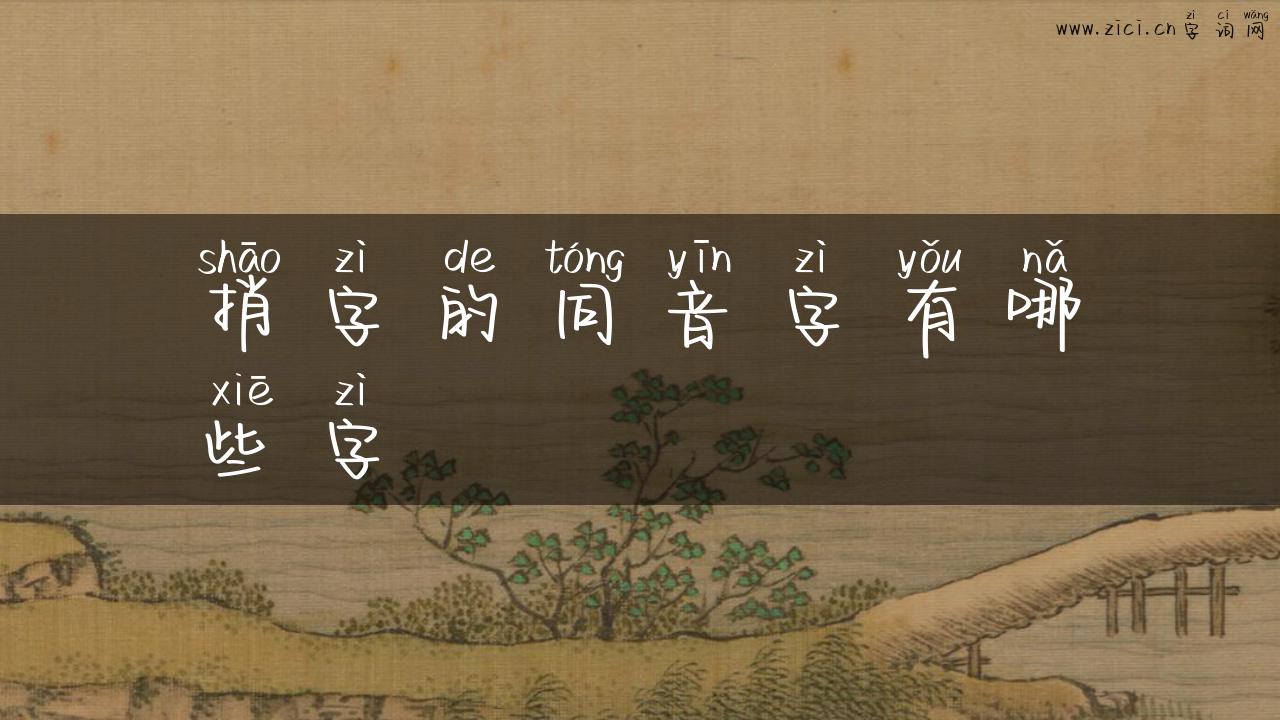 zì cí wǎng
www.zici.cn 字 词 网
shāo zì de tóng yīn zì yǒu nǎ
捎 字 的 同 音 字 有 哪
xiē zì
些 字